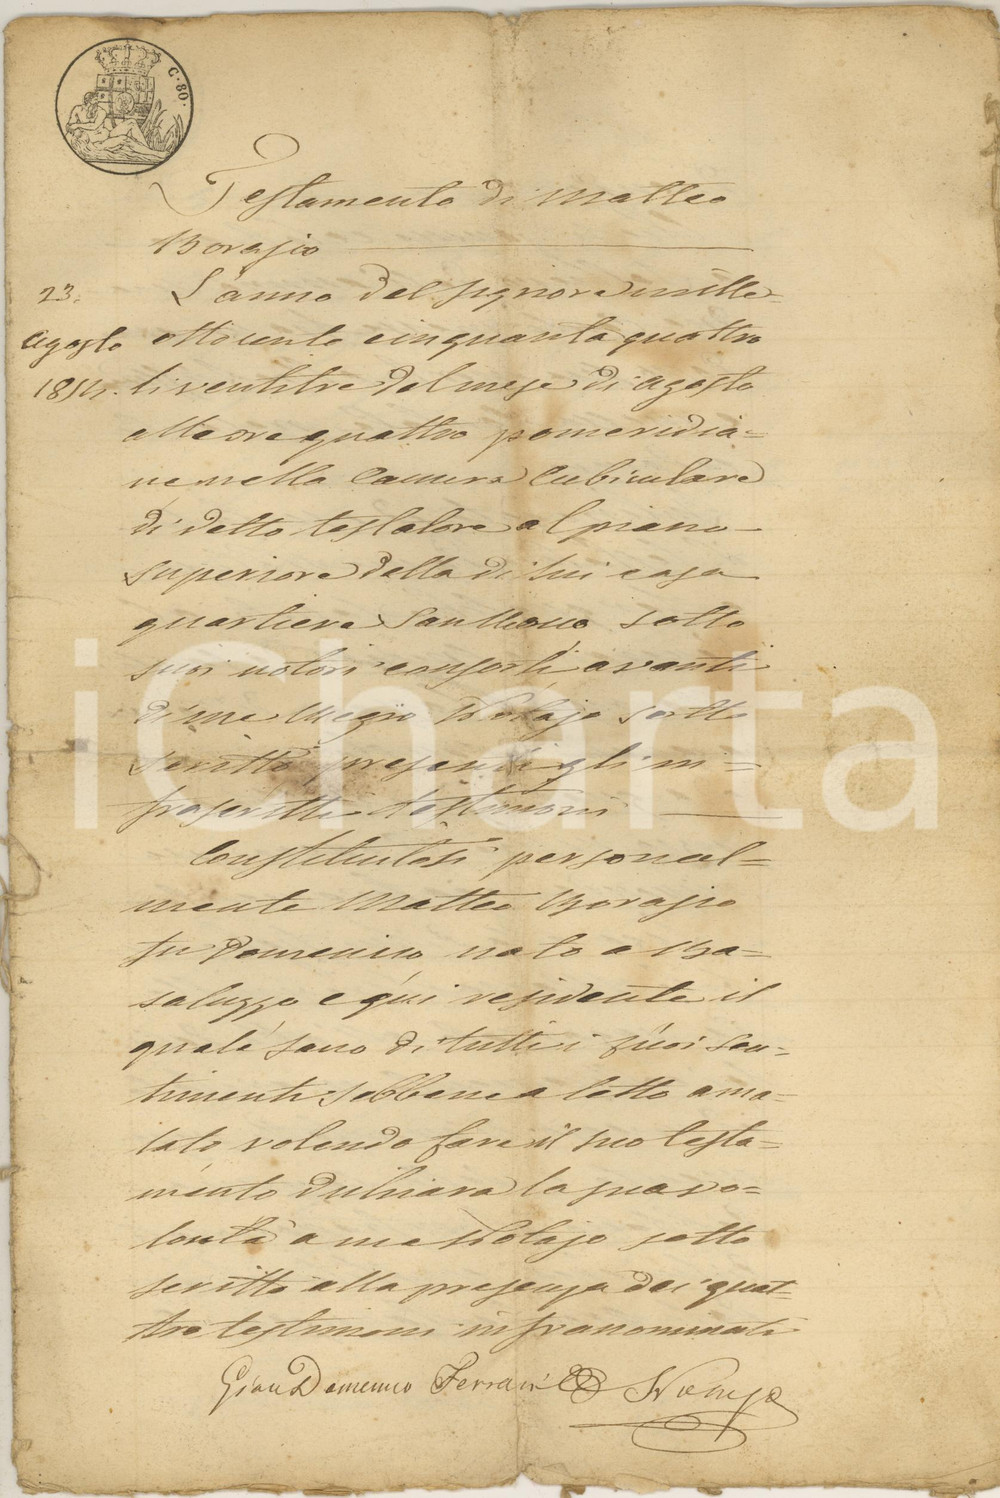 C. 80.
Testamento di Matteo
Boragio
23.
Agosto
1854.
L'anno del signore mille
ottocento cinquanta quattro
li ventitre del mese di agosto
alle ore quattro pomeridia=
ne nella Camera Cubiculare
di detto testatore al piano
superiore della di lui casa
quartiere San sotto
suoi notori consorti avanti
di me Regio Notajo sotto
scritto presenti gli in=
frascritti testimoni
Constituitosi personal=
mente Matteo Boragio
fu Domenico nato a Ba=
saluzzo e qui residente il
quale sano di tutti i suoi sen=
timenti sebbene a letto ama=
lato volendo fare il suo testa=
mento dichiara la sua vo=
lontà a me Notajo sotto
scritto alla presenza dei quat=
tro testimoni infranominati
Gian Domenico Ferrari
iCharta